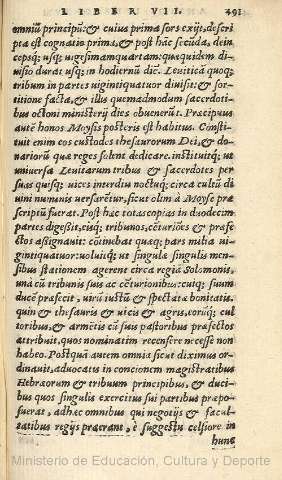 LIBER VII. 491
omniũ principũ: & cuius prima sors exijt, descri
pta est cognatio prima, & post hãc secũda, dein
cepsq; usq; uigesimamquartam: quæquidem di-
uisio durat usq; in hodiernũ diẽ. Leuiticã quoq;
tribum in partes uigintiquatuor diuisit: & sor-
titione facta, & illis quemadmodum sacerdoti-
bus octoni ministerij dies obuenerũt. Præcipuus
autẽ honos Moysis posteris est habitus. Consti-
tuit enim eos custodes thesaurorum Dei, & do-
nariorũ quæ reges solent dedicare. instituitq; ut
uniuersa Leuitarum tribus & sacerdotes per
suas quisq; uices interdiu noctuq; circa cultũ di
uini numinis uersarẽtur, sicut olim à Moyse præ
scriptũ fuerat. Post hæc totas copias in duodecim
partes digessit, eisq; tribunos, cẽturiões & præfe
ctos assignauit: cõtinebat quæq; pars millia ui-
gintiquatuor: uoluitq; ut singulæ singulis men-
sibus stationem agerent circa regiã Solomonis,
unà cũ tribunis suis ac cẽturionibus: cuiq; suum
ducẽ præfecit, uirũ iustũ & spectatæ bonitatis.
quin & thesauris & uicis & agris, eorũq; cul
toribus, & armẽtis cũ suis pastoribus præfectos
attribuit, quos nominatim recensere necesse non
habeo. Postquã autem omnia sicut diximus or-
dinauit, aduocatis in concionem magistratibus
Hebræorum & tribuum principibus, & duci-
bus quos singulis exercitus sui partibus præpo-
suerat, adhæc omnibus qui negotijs & facul-
tatibus regijs præerant, è suggestu celsiore in
hunc
Ministerio de Educación, Cultura y Deporte